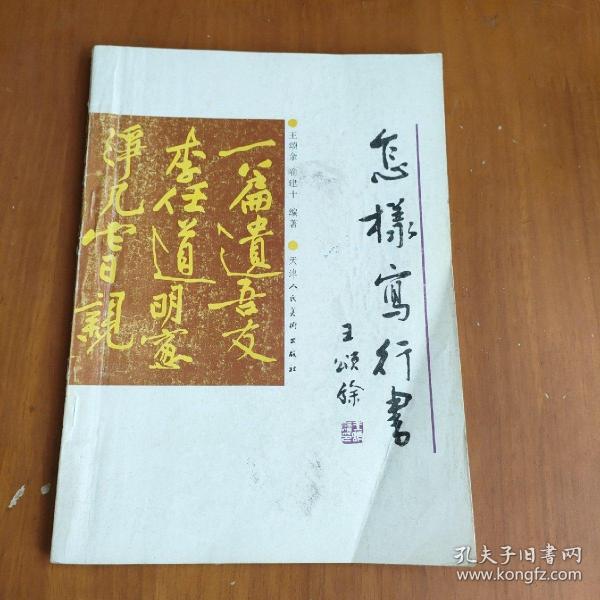 怎樣寫行書
王頌餘
王颂余 喻建十 编著
天津人民美術出版社
一篇遺吾友
李任道明窗
淨几嘗親
孔夫子旧书网
www.kongfz.com